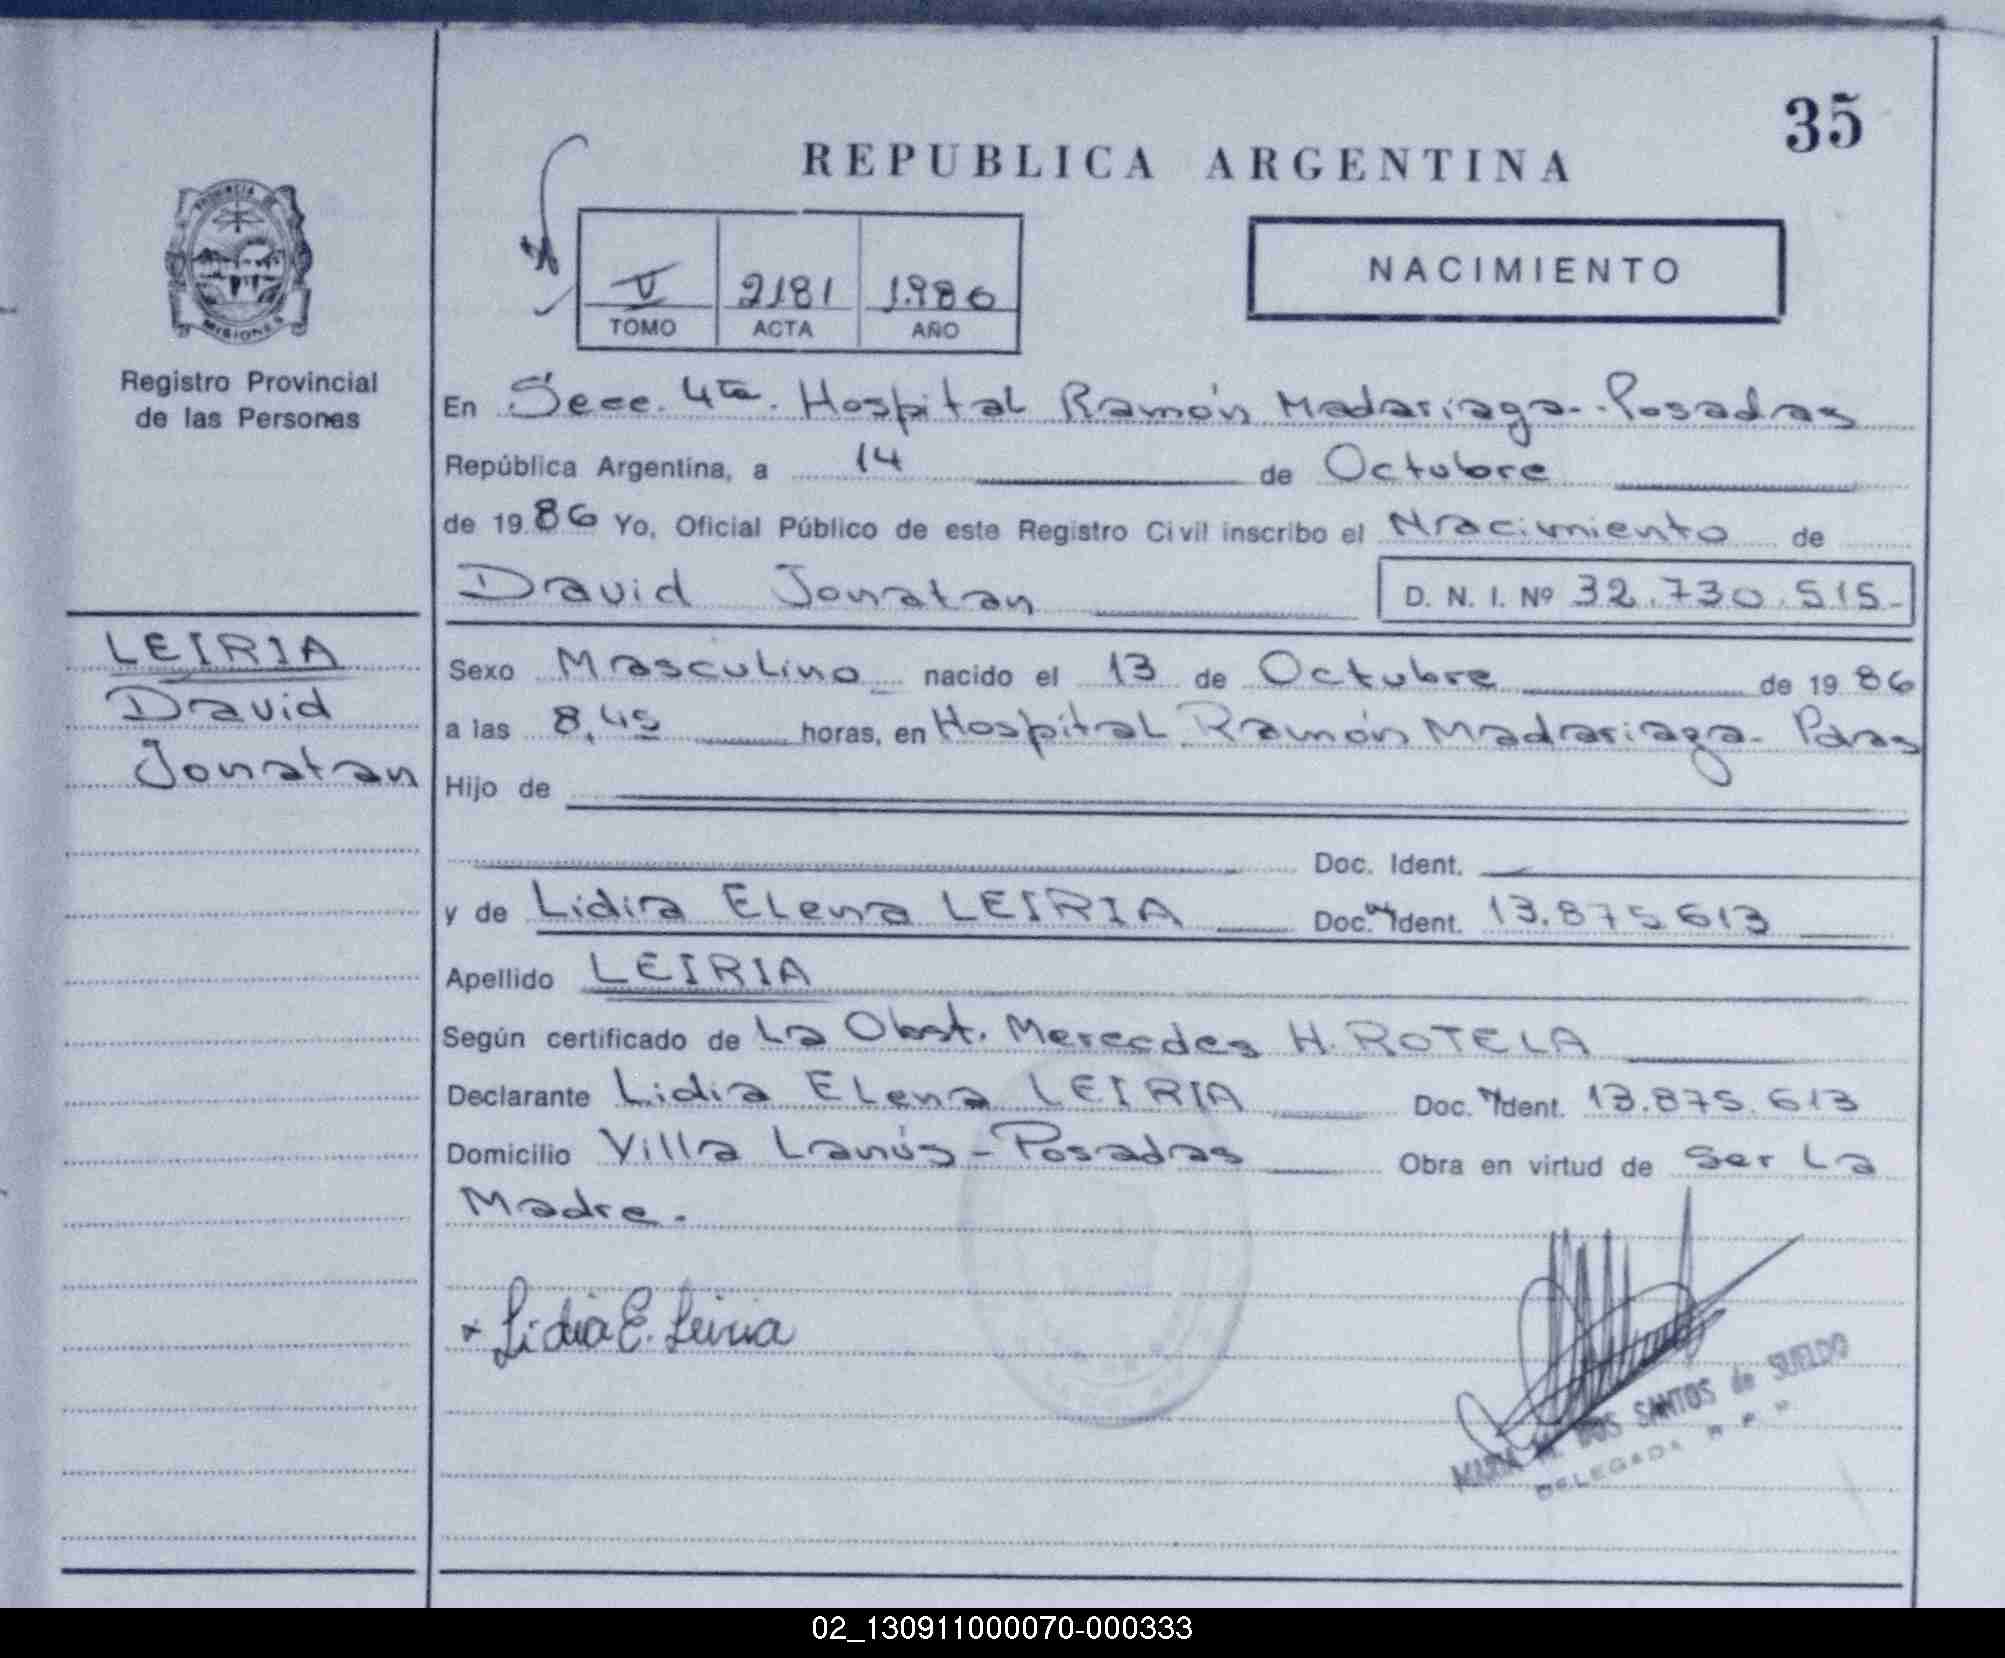 35
REPUBLICA ARGENTINA
PROVINCIA DE
MISIONES
Registro Provincial
de las Personas
V 2181 1.986
TOMO ACTA AÑO
NACIMIENTO
En Secc. 4ta. Hospital Ramón Madariaga - Posadas
República Argentina, a 14 de Octubre
de 19 86 Yo, Oficial Público de este Registro Civil inscribo el Nacimiento de
David Jonatan D. N. I. Nº 32.730.515-
LEIRIA
David
Jonatan
Sexo Masculino nacido el 13 de Octubre de 19 86
a las 8,45 horas, en Hospital Ramón Madariaga - Pdas
Hijo de
Doc. Ident.
y de Lidia Elena LEIRIA Doc. Ident. 13.875.613
Apellido LEIRIA
Según certificado de La Obst. Mercedes H. ROTELA
Declarante Lidia Elena LEIRIA Doc. Ident. 13.875.613
Domicilio Villa Lanús - Posadas Obra en virtud de ser La
Madre.
x Lidia E. Leiria
MARIA M. DOS SANTOS de SUELDO
DELEGADA
02_130911000070-000333